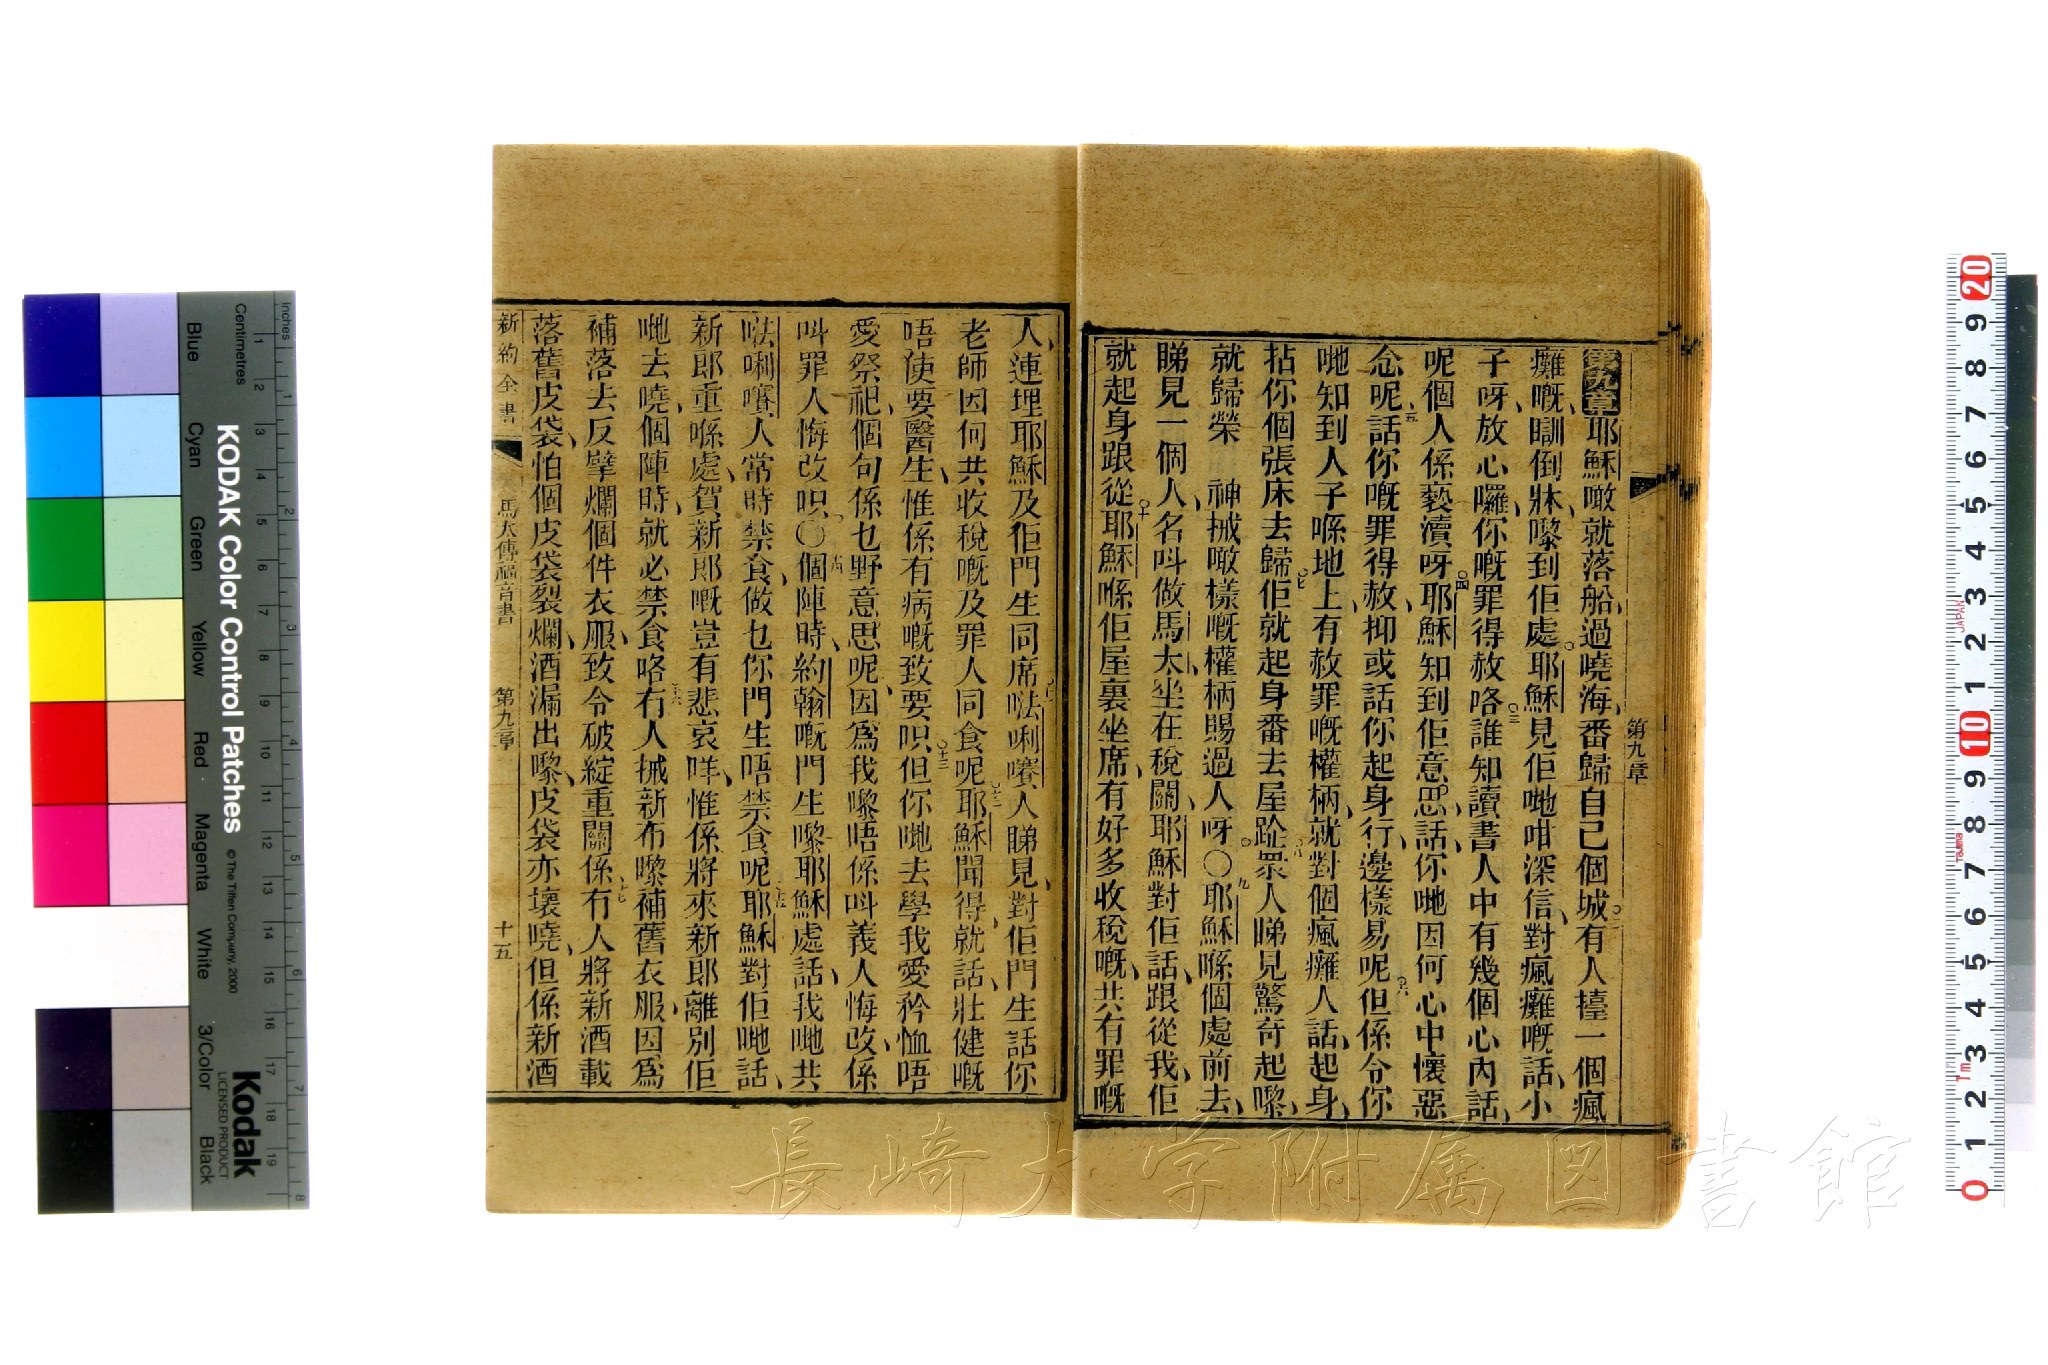 第九章耶穌噉就落船過嘵海番歸自己個城有人擡一個瘋
癱嘅瞓倒牀嚟到佢處耶穌見佢哋咁深信對瘋癱嘅話小
子呀放心囉你嘅罪得赦咯誰知讀書人中有幾個心內話
呢個人係褻瀆呀耶穌知到佢意思話你哋因何心中懷惡
念呢話你嘅罪得赦抑或話你起身行邊樣易呢但係令你
哋知到人子喺地上有赦罪嘅權柄就對個瘋癱人話起身
拈你個張床去歸佢就起身番去屋跕衆人睇見驚奇起嚟
就歸榮 神搣噉樣嘅權柄賜過人呀〇耶穌喺個處前去
睇見一個人名呌做馬太坐在稅關耶穌對佢話跟從我佢
就起身跟從耶穌喺佢屋裏坐席有好多收稅嘅共有罪嘅
第九章
人連埋耶穌及佢門生同席㕸唎嚽人睇見對佢門生話你
老師因何共收稅嘅及罪人同食呢耶穌聞得就話壯健嘅
唔使要醫生惟係有病嘅致要呮但你哋去學我愛矜恤唔
愛祭祀個句係乜野意思呢因爲我嚟唔係呌義人悔改係
呌罪人悔改呮〇個陣時約翰嘅門生嚟耶穌處話我哋共
㕸唎嚽人常時禁食做乜你門生唔禁食呢耶穌對佢哋話
新郎重喺處賀新郎嘅豈有悲哀咩惟係將來新郎離別佢
哋去嘵個陣時就必禁食咯冇人搣新布嚟補舊衣服因爲
補落去反擘爛個件衣服致令破綻重關係有人將新酒載
落舊皮袋怕個皮袋裂爛酒漏出嚟皮袋亦壞嘵但係新酒
新約全書 馬太傳福音書 第九章 十五
長崎大学附属図書館
KODAK Color Control Patches
© The Tiffen Company, 2000
Kodak
LICENSED PRODUCT
Blue Cyan Green Yellow Red Magenta White 3/Color Black
Inches
Centimetres